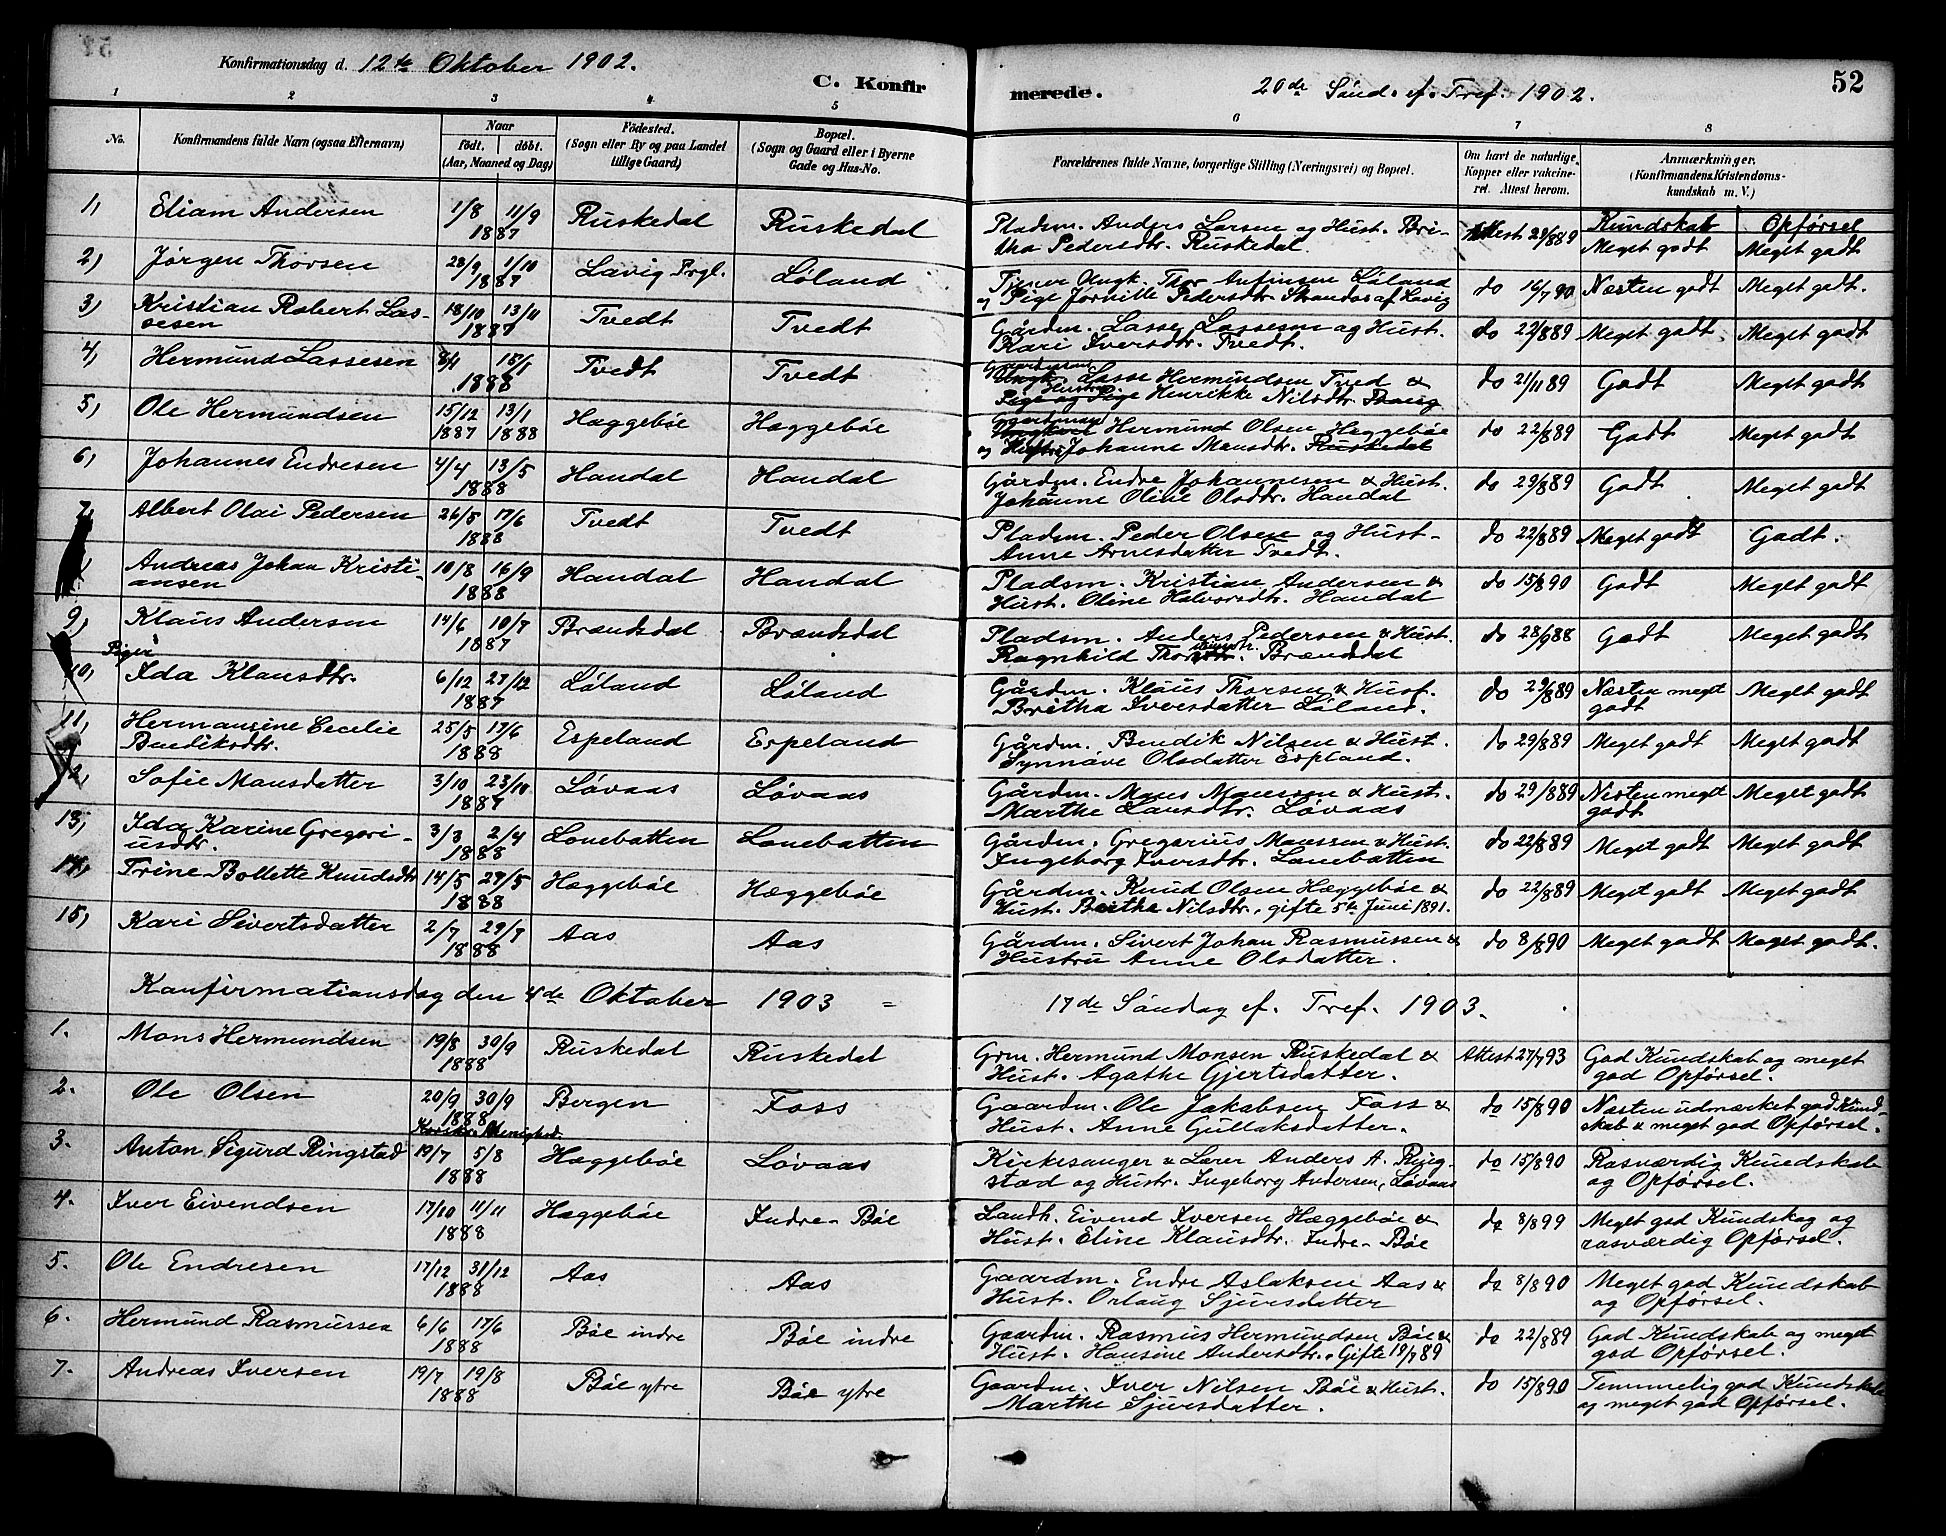 Konfirmationsdag d. 12te Oktober 1902.
C. Konfirmerede.
20de Sønd. ef. Tref. 1902.
52
1 2 3 4 5 6 7 8
No.
Konfirmandens fulde Navn (ogsaa Efternavn)
Naar
født. døbt.
(Aar, Maaned og Dag)
Fødested.
(Sogn eller By og paa Landet
tillige Gaard)
Bopæl.
(Sogn og Gaard eller i Byerne
Gade og Hus-No.
Forældrenes fulde Navne, borgerlige Stilling (Næringsvei) og Bopæl.
Om havt de naturlige
Kopper eller vakcine-
ret. Attest herom.
Anmærkninger.
(Konfirmandens Kristendoms-
kundskab m. V.)
Kundskab Opførsel
1, Eliam Andersen 1/8 11/9 1887 Ruskedal Ruskedal Pladsm. Anders Larsen og Hust. Bri-
tha Pedersdtr. Ruskedal Attest 29/889 Meget godt Meget godt
2, Jørgen Thorsen 28/9 1/10 1887 Lavig Prgl. Løland Tjener Ungk. Thor Anfinsen Løland
og Pige Jørville Pedersdtr. Strandos af Lavig do 16/7 90 Næsten godt Meget godt.
3, Kristian Robert Las-
sesen 18/10 13/11 1887 Tvedt Tvedt Gårdm. Lasse Lassesen og Hust.
Kari Iversdtr. Tvedt. do 22/889 Meget godt Meget godt
4, Hermund Lassesen 15/1 1888 Tvedt Tvedt Lasse Hermundsen Tved &
Henrikke Nilsdtr. do 21/11 89 Godt Meget godt
5, Ole Hermundsen 15/12 1887 13/1 1888 Hæggebøe Hæggebøe Gaardmand Hermund Olsen Hæggebøe
og Hustru Johanne Monsdtr. Ruskedal do 22/889 Godt Meget godt
6, Johannes Endresen 4/4 13/5 1888 Handal Handal Gårdm. Endre Johannesen & Hust.
Johanne Oline Olsdtr. Handal do 29/889 Godt Meget godt
7, Albert Olai Pedersen 26/5 17/6 1888 Tvedt Tvedt Pladsm. Peder Olsen og Hust-
Anne Arnesdatter Tvedt. do 22/889 Meget godt Godt.
Andreas Johan Kristi-
ansen 10/8 16/9 1888 Handal Handal Pladsm. Kristian Andersen &
Hust. Oline Halvorsdtr. Handal do 15/8 90 Godt Meget godt
9, Klaus Andersen 14/6 10/7 1887 Brændsdal Brændsdal Pladsm. Anders Pedersen & Hust.
Ragnhild Brændsdal do 28/988 Godt Meget godt
Piger
10, Ida Klausdtr. 6/12 27/12 1887 Løland Løland Gårdm. Klaus Thorsen & Hust.
Britha Iversdatter Løland. do 29/889 Næsten meget
godt Meget godt
11, Hermansine Cecelie
Bendiksdtr. 25/5 17/6 1888 Espeland Espeland Gårdm. Bendik Nilsen & Hust.
Synnøve Olsdatter Espland. do 29/889 Meget godt Meget godt
12, Sofie Mansdatter 3/10 23/10 1887 Løvaas Løvaas Gårdm. Mons Monssen & Hust.
Marthe Larsdtr. Løvaas do 29/889 Næsten meget
godt Meget godt
13, Ida Karine Gregori-
usdtr. 3/3 2/4 1888 Lonebatten Lonebatten Gårdm. Gregorius Monssen & Hust.
Ingeborg Iversdtr. Lonebatten do 22/889 Meget godt Meget godt
14, Trine Bollette Knudsdtr 14/5 27/5 1888 Hæggebøe Hæggebøe Gårdm. Knud Olsen Hæggebøe &
Hust. Berthe Nilsdtr. gifte 5te Juni 1891. do 22/889 Meget godt Meget godt
15, Kari Sivertsdatter 2/7 29/7 1888 Aas Aas Gårdm. Sivert Johan Rasmussen &
Hustru Anne Olsdatter. do 8/890 Meget godt Meget godt.
Konfirmationsdag den 4de Oktober 1903 = 17de Søndag ef. Tref. 1903.
1. Mons Hermundsen 19/8 30/9 1888 Ruskedal Ruskedal Grm. Hermund Monsen Ruskedal &
Hust. Agathe Gjertsdatter. Attest 27/793 God Kundskab og meget
god Opførsel.
2. Ole Olsen 20/9 30/9 1888 Bergen Foss Gaardm. Ole Jakobsen Foss &
Hust. Anne Gullaksdatter. do 15/890 Næsten udmærket god Kund-
skab & meget god Opførsel.
Korsk. Menighed
3. Anton Sigurd Ringstad 19/7 5/8 1888 Hæggebøe Løvaas Kirkesanger & Lærer Anders A. Ring-
stad og Hustr. Ingeborg Andersen, Løvaas do 15/890 Rosværdig Kundskab
og Opførsel.
4. Iver Eivendsen 17/10 11/11 1888 Hæggebøe Indre-Bøe Landh. Eivend Iversen Hæggebøe &
Hust. Eline Klausdtr. Indre-Bøe do 8/899 Meget god Kundskag og
rosværdig Opførsel.
5. Ole Endresen 17/12 31/12 1888 Aas Aas Gaardm. Endre Aslaksen Aas &
Hust. Orlaug Sjursdatter do 8/890 Meget god Kundskab
og Opførsel.
6. Hermund Rasmussen 6/6 17/6 1888 Bøe indre Bøe indre Gaardm. Rasmus Hermundsen Bøe &
Hust. Hansine Andersdtr. Gifte 19/789 do 22/889 God Kundskab og meget
god Opførsel.
7. Andreas Iversen 19/7 19/8 1888 Bøe ytre Bøe ytre Gaardm. Iver Nilsen Bøe & Hust.
Marthe Sjursdatter. do 15/890 Temmelig god Kundskab
og meget god Opførsel.